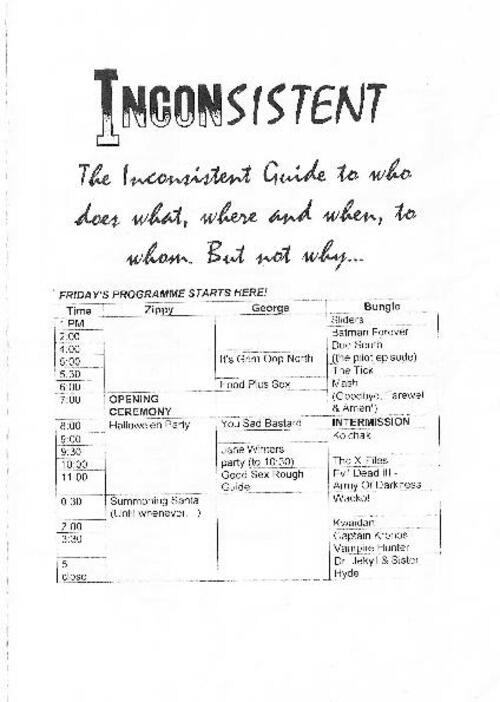 INCONSISTENT
The Inconsistent Guide to who
does what, where and when, to
whom. But not why...
FRIDAY'S PROGRAMME STARTS HERE!
Time Zippy George Bungle
1 PM Sliders
2:00 Batman Forever
4:00 Due South
5:00 It's Grim Oop North (the pilot episode)
5.30 The Tick
6:00 Food Plus Sex Mash
7:00 OPENING (Goodbye, Farewel
CEREMONY & Amen')
8:00 Halloween Party You Sad Bastard INTERMISSION
9:00 Kolchak
9:30 Jane Winters
10:00 party (to 10:30) The X Files
11:00 Good Sex Rough Evil Dead III -
Guide Army Of Darkness
0:30 Summoning Santa Wacko!
(Until whenever...)
2:00 Kwaidan
3:30 Captain Kronos
Vampire Hunter
5 Dr. Jekyll & Sister
close Hyde